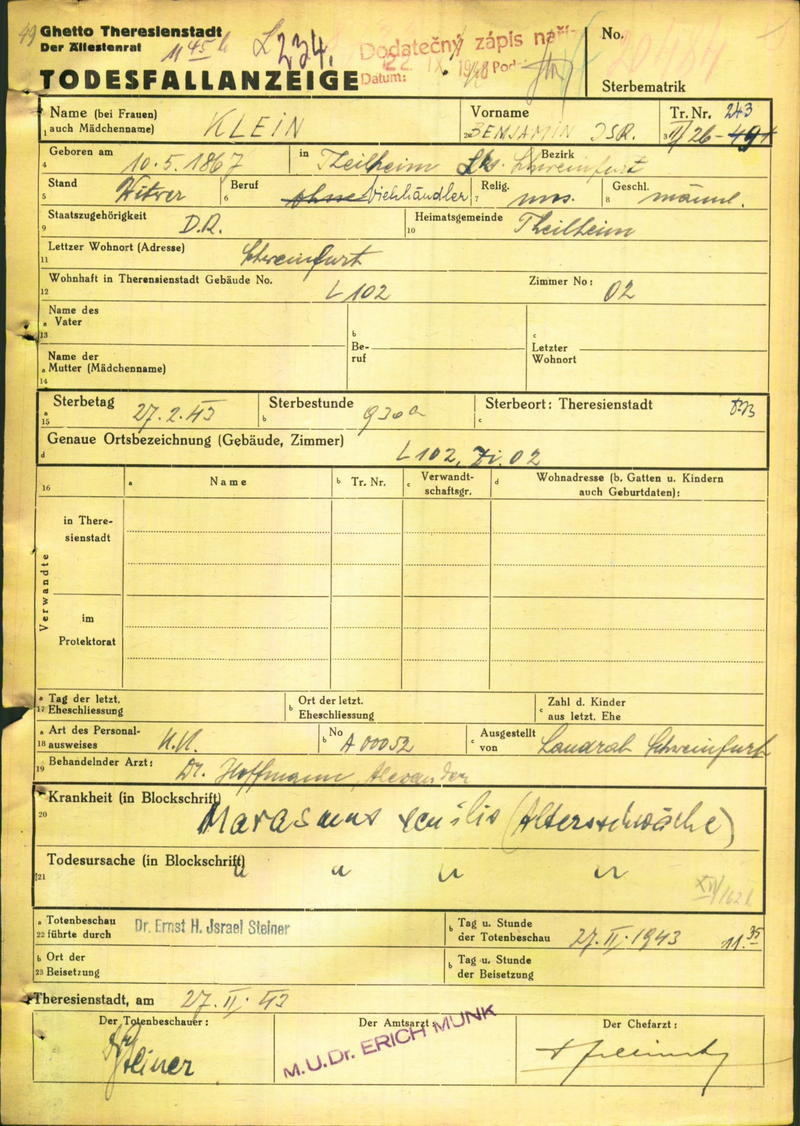 49 Ghetto Theresienstadt
Der Ältestenrat
11 45 h L 234.
Dodatečný zápis
Datum: 22. IX. 1948 Pod
No.
TODESFALLANZEIGE
Sterbematrik
Name (bei Frauen) KLEIN Vorname Tr. Nr. 243
1 auch Mädchenname) 2 BENJAMIN ISR. 3 II/26-
Geboren am 10.5.1867 in Theilheim Lks. Schweinfurt Bezirk
4
Stand Witwer Beruf ohne Viehhändler Relig. mos. Geschl. männl.
5 6 7 8
Staatszugehörigkeit D.R. Heimatsgemeinde Theilheim
9 10
Lettzer Wohnort (Adresse) Schweinfurt
11
Wohnhaft in Theresienstadt Gebäude No. L 102 Zimmer No: 02
12
Name des
a Vater
13
b
Be-
ruf
c
Letzter
Wohnort
Name der
a Mutter (Mädchenname)
14
Sterbetag 27.2.43 Sterbestunde 930 a Sterbeort: Theresienstadt
a 15 b c
Genaue Ortsbezeichnung (Gebäude, Zimmer)
d L 102, Zi. 02
16 a Name b Tr. Nr. c Verwandt-
schaftsgr.
d Wohnadresse (b. Gatten u. Kindern
auch Geburtdaten):
Verwandte
in There-
sienstadt
im
Protektorat
a Tag der letzt.
17 Eheschliessung
Ort der letzt.
b Eheschliessung
Zahl d. Kinder
c aus letzt. Ehe
a Art des Personal-
18 ausweises K.K.
b No A 00052
c Ausgestellt
von Landrat Schweinfurt
Behandelnder Arzt: Dr. Hoffmann, Alexander
19
Krankheit (in Blockschrift)
20 Marasmus senilis (Altersschwäche)
Todesursache (in Blockschrift)
21 " " " "
XVI/162
a Totenbeschau
22 führte durch Dr. Ernst H. Jsrael Steiner
b Tag u. Stunde
der Totenbeschau 27. II. 1943 11.35
b Ort der
23 Beisetzung
b Tag u. Stunde
der Beisetzung
Theresienstadt, am 27. II. 43
Der Totenbeschauer: Der Amtsarzt: Der Chefarzt:
Dr Steiner
M.U.Dr. ERICH MUNK